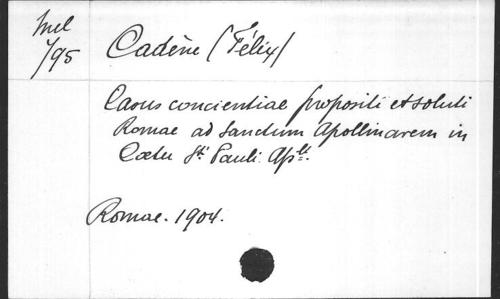 Mel
1/95
Cadène (Félix)
Casus concientiae propositi et soluti
Romae ad Sanctum Apollinarem in
Coetu Sti Pauli Aplt.
Romae. 1904.